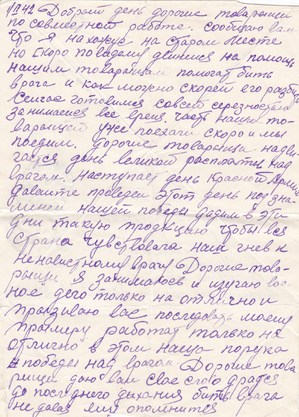 1942 Добрый день дорогие товарищи
по совместной работе. Сообщаю вам
что я нахожус на старом месте
но скоро поведем двинися на помощь
нашим товарищам помогат бить
врага и как можно скорей его разбит
Сейчас готовимся совсей серезностью
занимаемся все время. часть наших то-
варищей уже поехали скоро и мы
поедим. дорогие товарищи надви-
гается день великой расплаты над
врагом наступает день Красной Армии
давайте проведем этот день под зна-
менем нашей победы дадим в эти
дни такую продукцию чтобы вся
страна чувствовала наш гнев к
ненавистному врагу Дорогие това-
рищи я занимаюсь и изучаю вое-
ное дело только на отлично и
призиваю вас последовать моему
примеру работат только на
отлично в этом наша порука
победы над врагом Дорогие това-
рищи даю вам свое слово дратся
до последнего дыхания бить врага
не давая ему опомнится